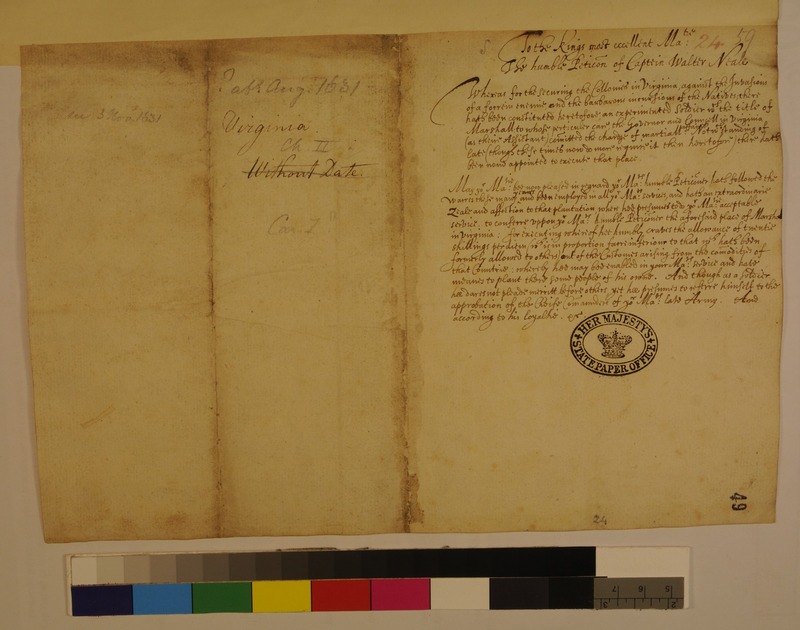 Past Aug. 1631
Virginia
Ch II
Without Date
To the Kings most excellent Matie
24 59
The humble Peticon of Captein Walter Neale
Wheras for the securing the Collonies in Virginia, against the Invasions
of a forrein enemie and the barbarous incursions of the Natives, there
hath been constituted heretofore an experimented Soldier wth the title of
Marshall to whose perticuler care the Governor and Councell in Virginia
(as their Assistant) comitted the charge of martiall
late (though these times now no more require it then heretofore) there hath
been none appointed to execute that place.
May yr Matie bee now pleased in regard yr Mats humble Peticoner hath followed the
Warrs these many yeares and been employed in all yr Mats services, and hath an extraordinarie
Zeale and affection to that plantation where hee presumeth to yr Mats acceptable
service, to conferre uppon yr Mats humble Peticoner the aforesaid place of Marshall
in Virginia: for executing wherof hee humbly craves the allowance of twentie
shillings per diem, wch is in proportion farr inferiour to that wch hath been
formerly allowed to others, out of the Customes arising from the comodities of
that Countrie: whereby hee may bee enabled in your Mats service and have
meanes to plant there some people of his owne. And though as a Soldier
hee dares not please meritt before others, yet hee presumes to referre himself to the
approbation of the Cheife Comanders of yr Mats late Army. And
according to his loyaltie. &c
HER MAJESTY'S
STATE PAPER OFFICE
49
24